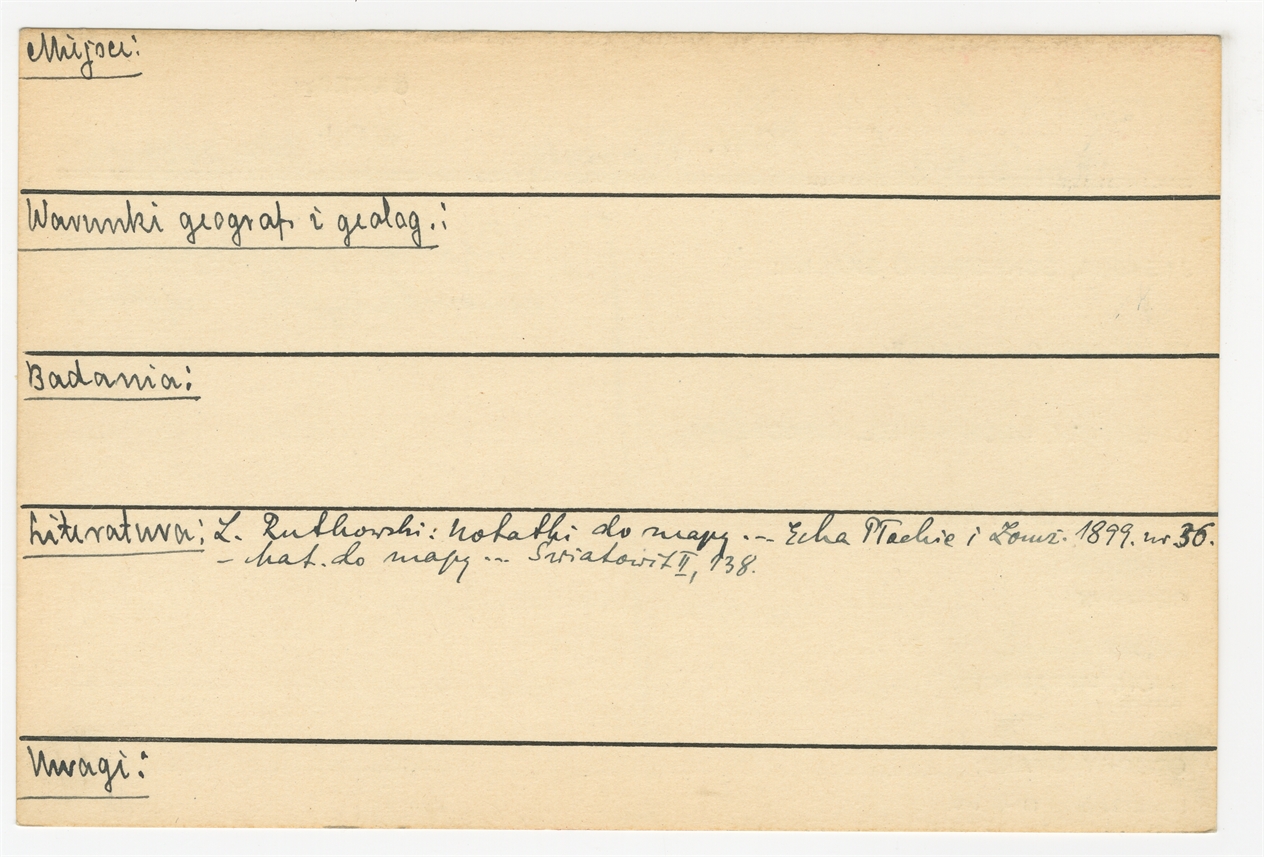 Miejsce:
Warunki geograf i geolog.:
Badania:
Literatura: L. Rutkowski: Notatki do mapy ... Echa Płockie i Łomż. 1899. nr 36.
– Mat. do mapy ... Światowit II, 138.
Uwagi: